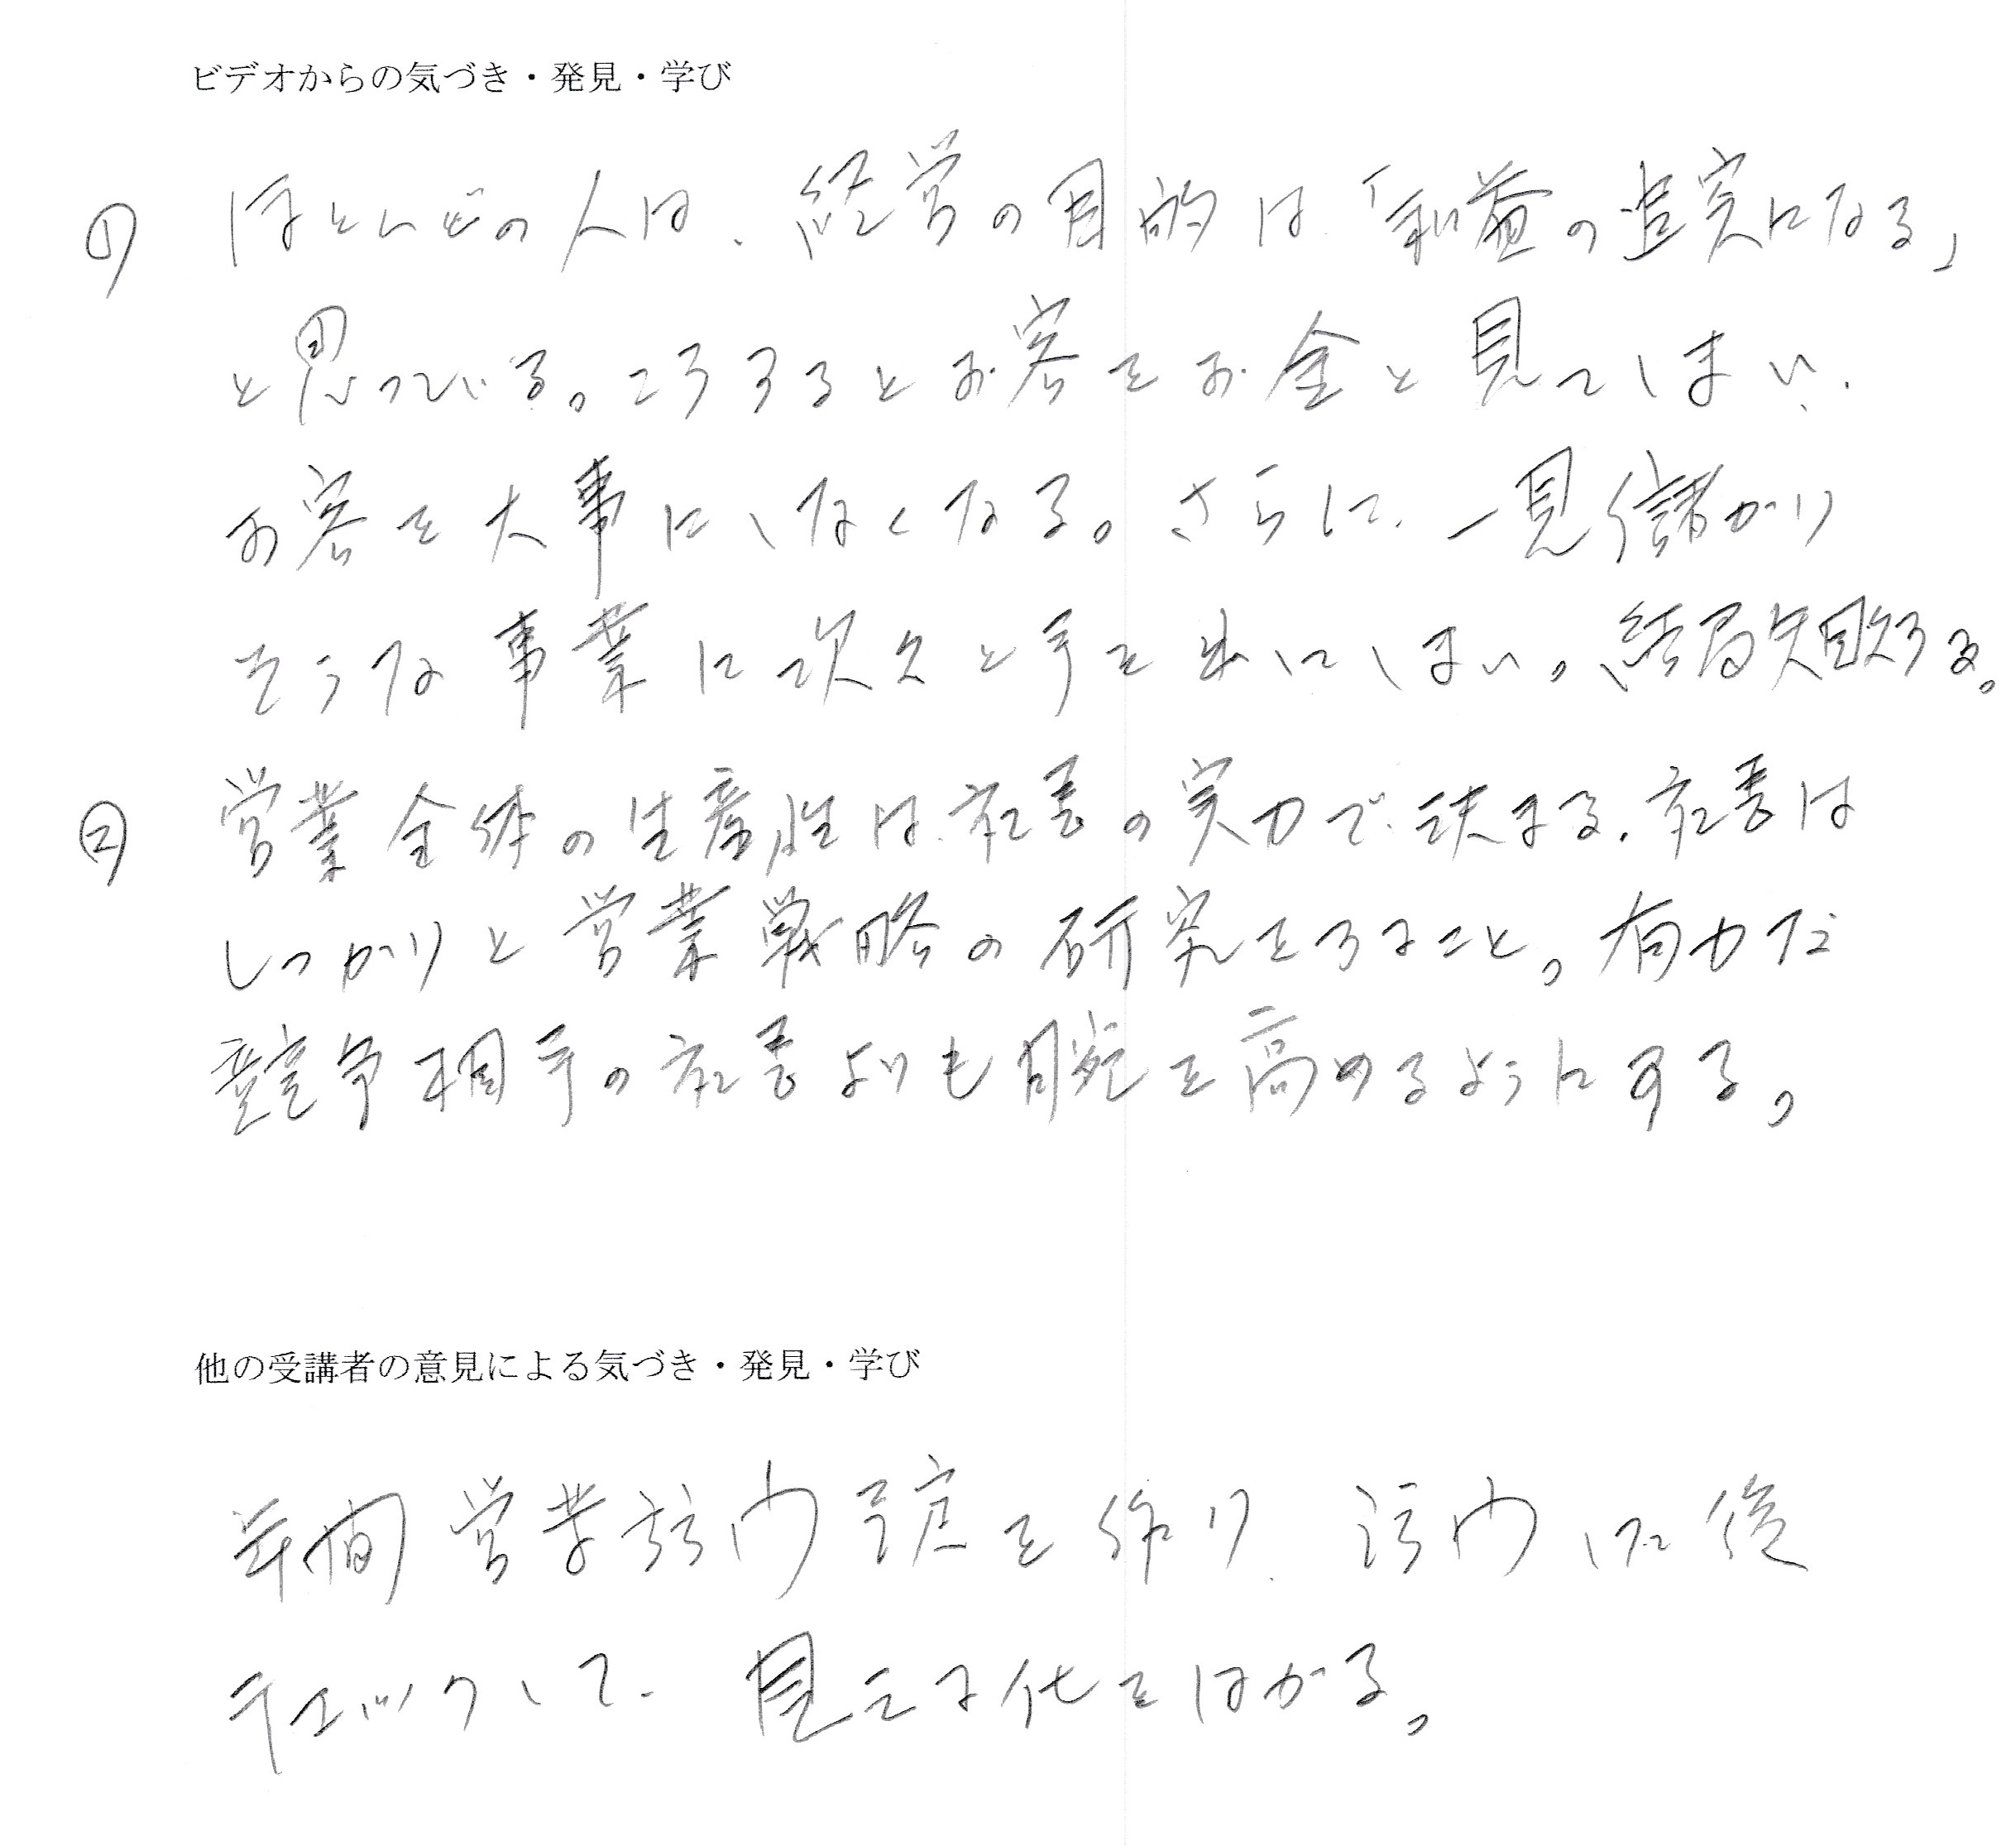 ビデオからの気づき・発見・学び
① ほとんどの人は、経営の目的は「利益の追実になる」
と思っている。こうするとお客をお金と見てしまい、
お客を大事にしなくなる。さらに、一見儲かり
そうな事業に次々と手を出してしまい、結局失敗する。
② 営業全体の生産性は、社長の実力で決まる。社長は
しっかりと営業戦略の研究をすること。有力な
競争相手の社長よりも能力を高めるようにする。
他の受講者の意見による気づき・発見・学び
年間営業訪問予定を作り、訪問した後
チェックして、見える化をはかる。